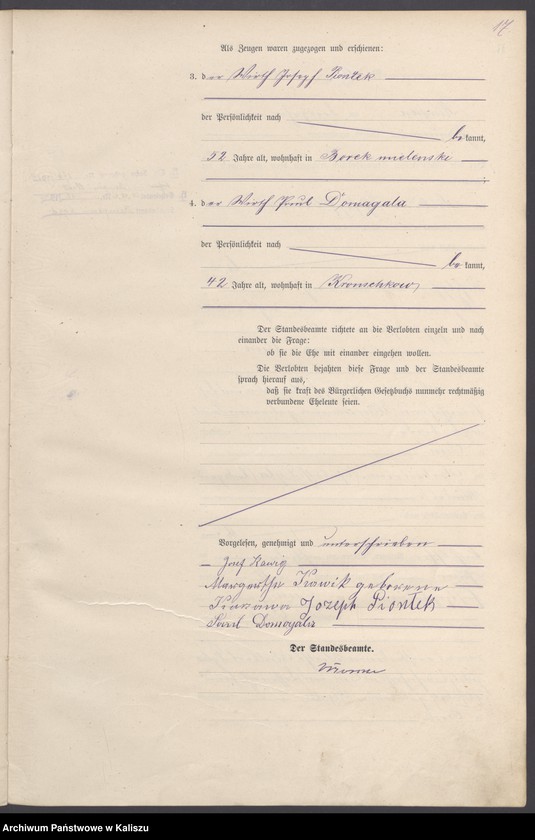 17
Als Zeugen waren zugezogen und erschienen:
3. der Wirth Joseph Piontek
der Persönlichkeit nach
be kannt,
52 Jahre alt, wohnhaft in Borek mielenski
4. der Wirth Paul Domagala
der Persönlichkeit nach
be kannt,
42 Jahre alt, wohnhaft in Kronschkow
Der Standesbeamte richtete an die Verlobten einzeln und nach
einander die Frage:
ob sie die Ehe mit einander eingehen wollen.
Die Verlobten bejahten diese Frage und der Standesbeamte
sprach hierauf aus,
daß sie kraft des Bürgerlichen Gesetzbuchs nunmehr rechtmäßig
verbundene Eheleute seien.
Vorgelesen, genehmigt und unterschrieben
Josef Kawig
Margaretha Kawik geborene
Joseph Piontek
Paul Domagala
Der Standesbeamte.
Archiwum Państwowe w Kaliszu